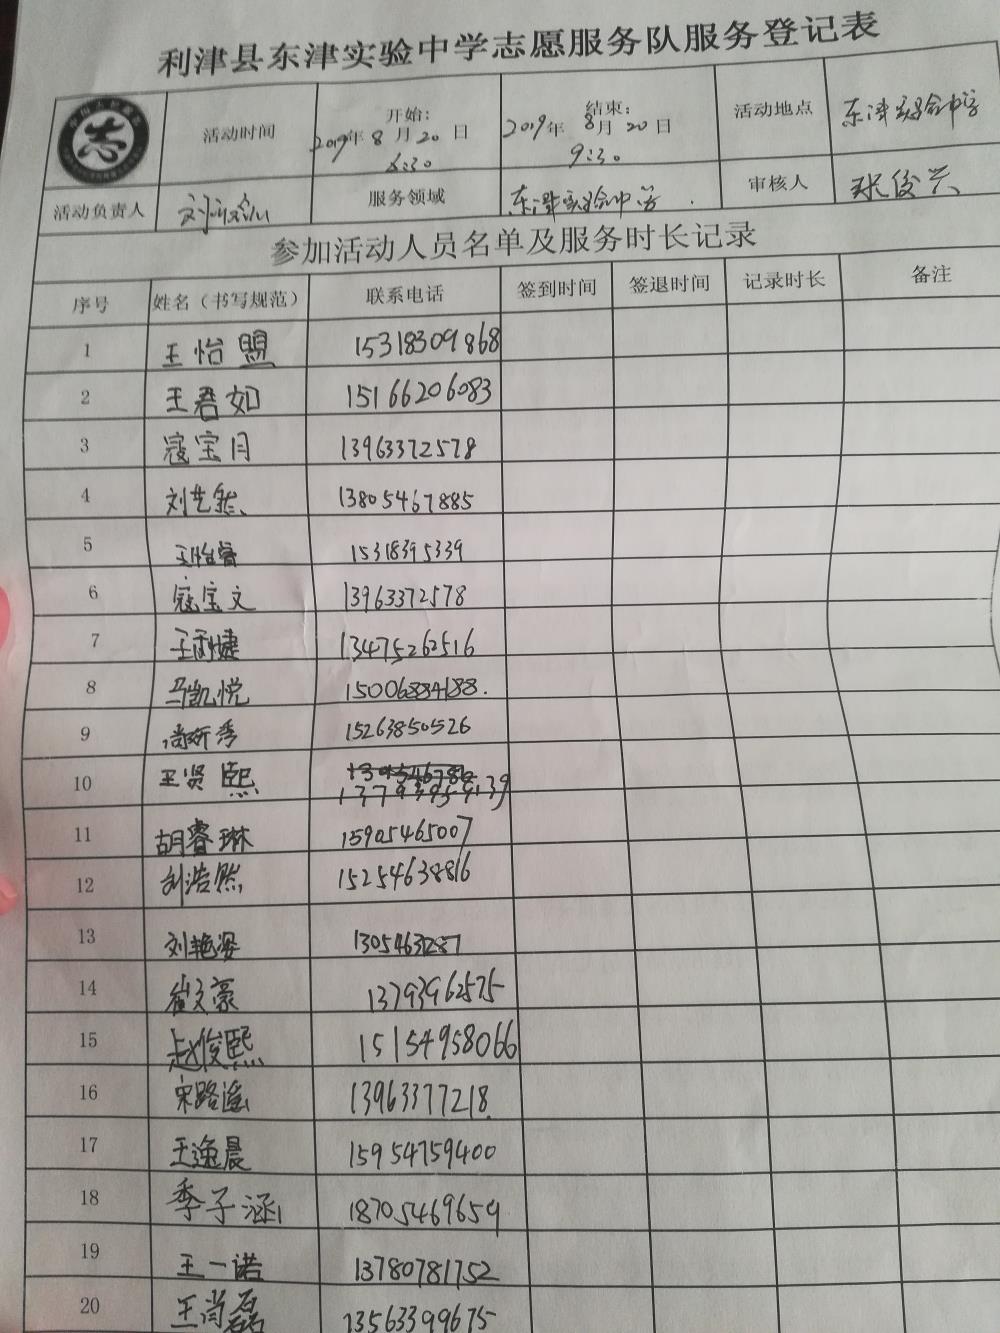 利津县东津实验中学志愿服务队服务登记表
志
活动时间 开始: 2019年8月20日 6:30 结束: 2019年8月20日 9:30 活动地点 东津实验中学
活动负责人 服务领域 东津实验中学 审核人 张俊兴
参加活动人员名单及服务时长记录
序号 姓名（书写规范） 联系电话 签到时间 签退时间 记录时长 备注
1 王怡盟 15318309868
2 王君如 15166206083
3 寇宝月 13963372578
4 刘艺然 13805467885
5 王怡睿 15318395339
6 寇宝文 13963372578
7 王雨婕 13475262516
8 马凯悦 15006884188.
9 尚妍秀 15263850526
10 王贤熙
11 胡睿琳 15905465007
12 刘浩然 15254638816
13 刘艳姿
14 崔文豪 13793962575
15 赵俊熙 15154958066
16 宋路遥 13963377218
17 王逸晨 15954759400
18 季子涵 18705469659
19 王一诺 13780781752
20 王尚磊 13563399675